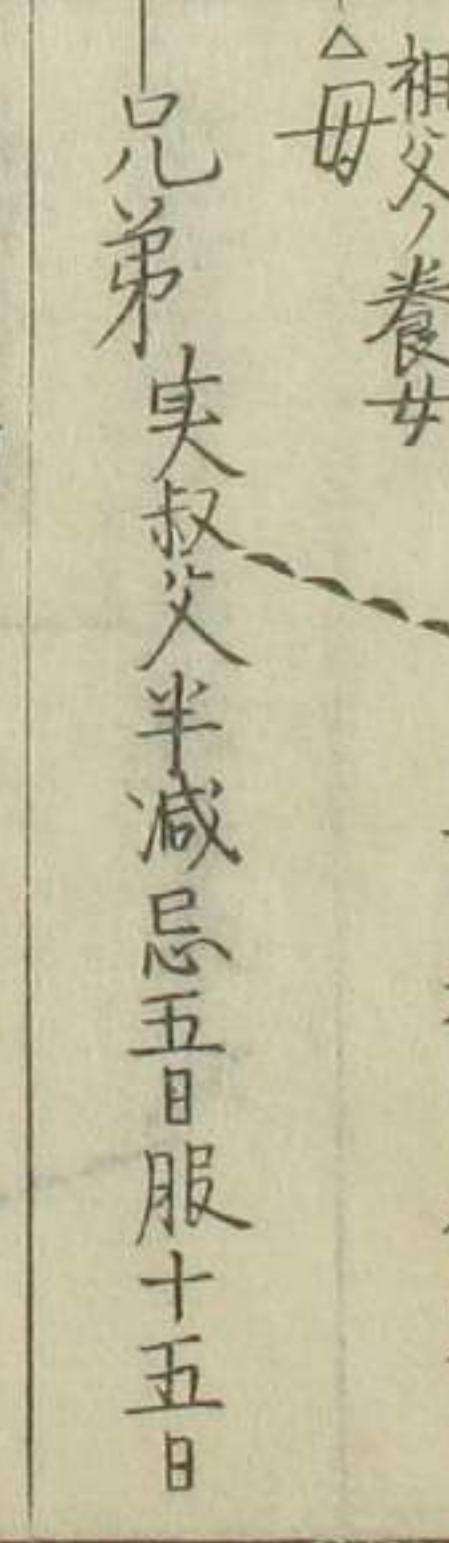 祖父ノ養女
母
兄弟実叔父半减忌五日服十五日